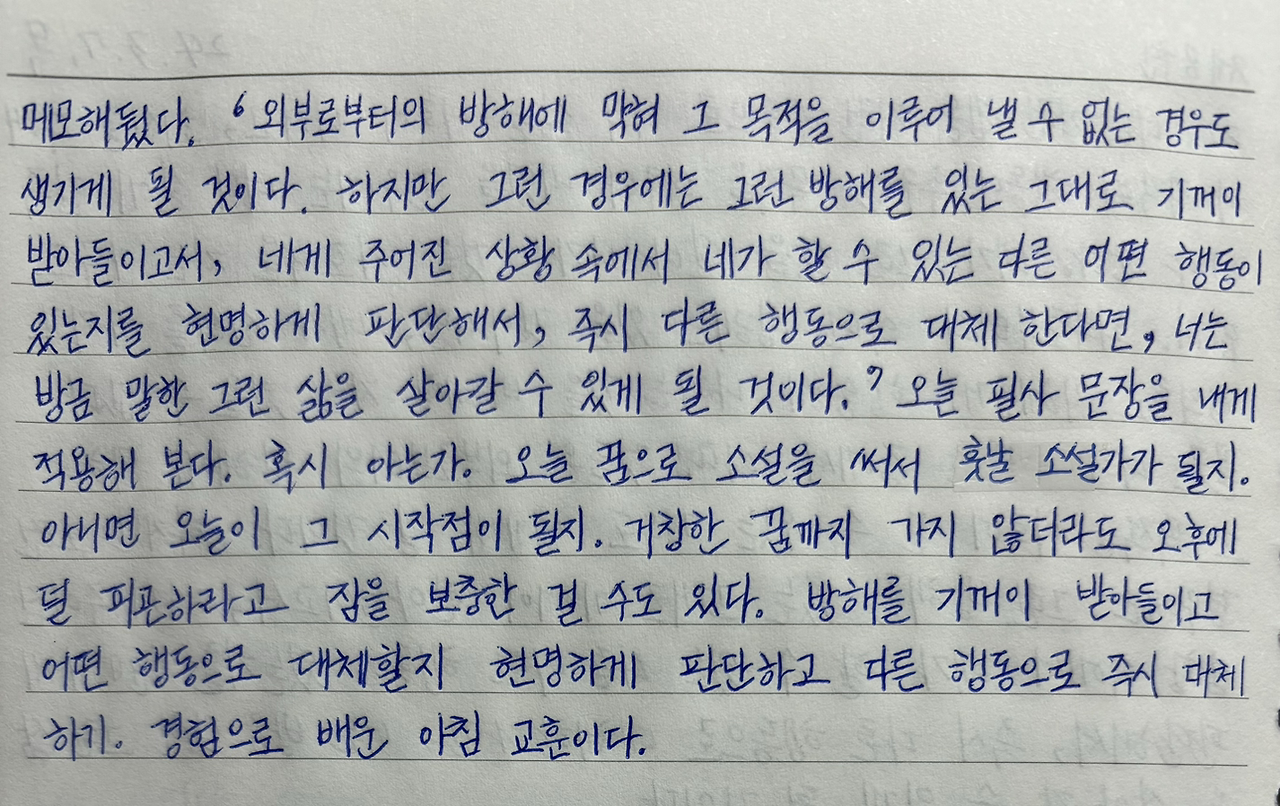 메모해뒀다. '외부로부터의 방해에 막혀 그 목적을 이루어 낼 수 없는 경우도
생기게 될 것이다. 하지만 그런 경우에는 그런 방해를 있는 그대로 기꺼이
받아들이고서, 네게 주어진 상황 속에서 네가 할 수 있는 다른 어떤 행동이
있는지를 현명하게 판단해서, 즉시 다른 행동으로 대체 한다면, 너는
방금 말한 그런 삶을 살아갈 수 있게 될 것이다.' 오늘 필사 문장을 내게
적용해 본다. 혹시 아는가. 오늘 꿈으로 소설을 써서 훗날 소설가가 될지.
아니면 오늘이 그 시작점이 될지. 거창한 꿈까지 가지 않더라도 오후에
덜 피곤하라고 잠을 보충한 걸 수도 있다. 방해를 기꺼이 받아들이고
어떤 행동으로 대체할지 현명하게 판단하고 다른 행동으로 즉시 대체
하기. 경험으로 배운 아침 교훈이다.